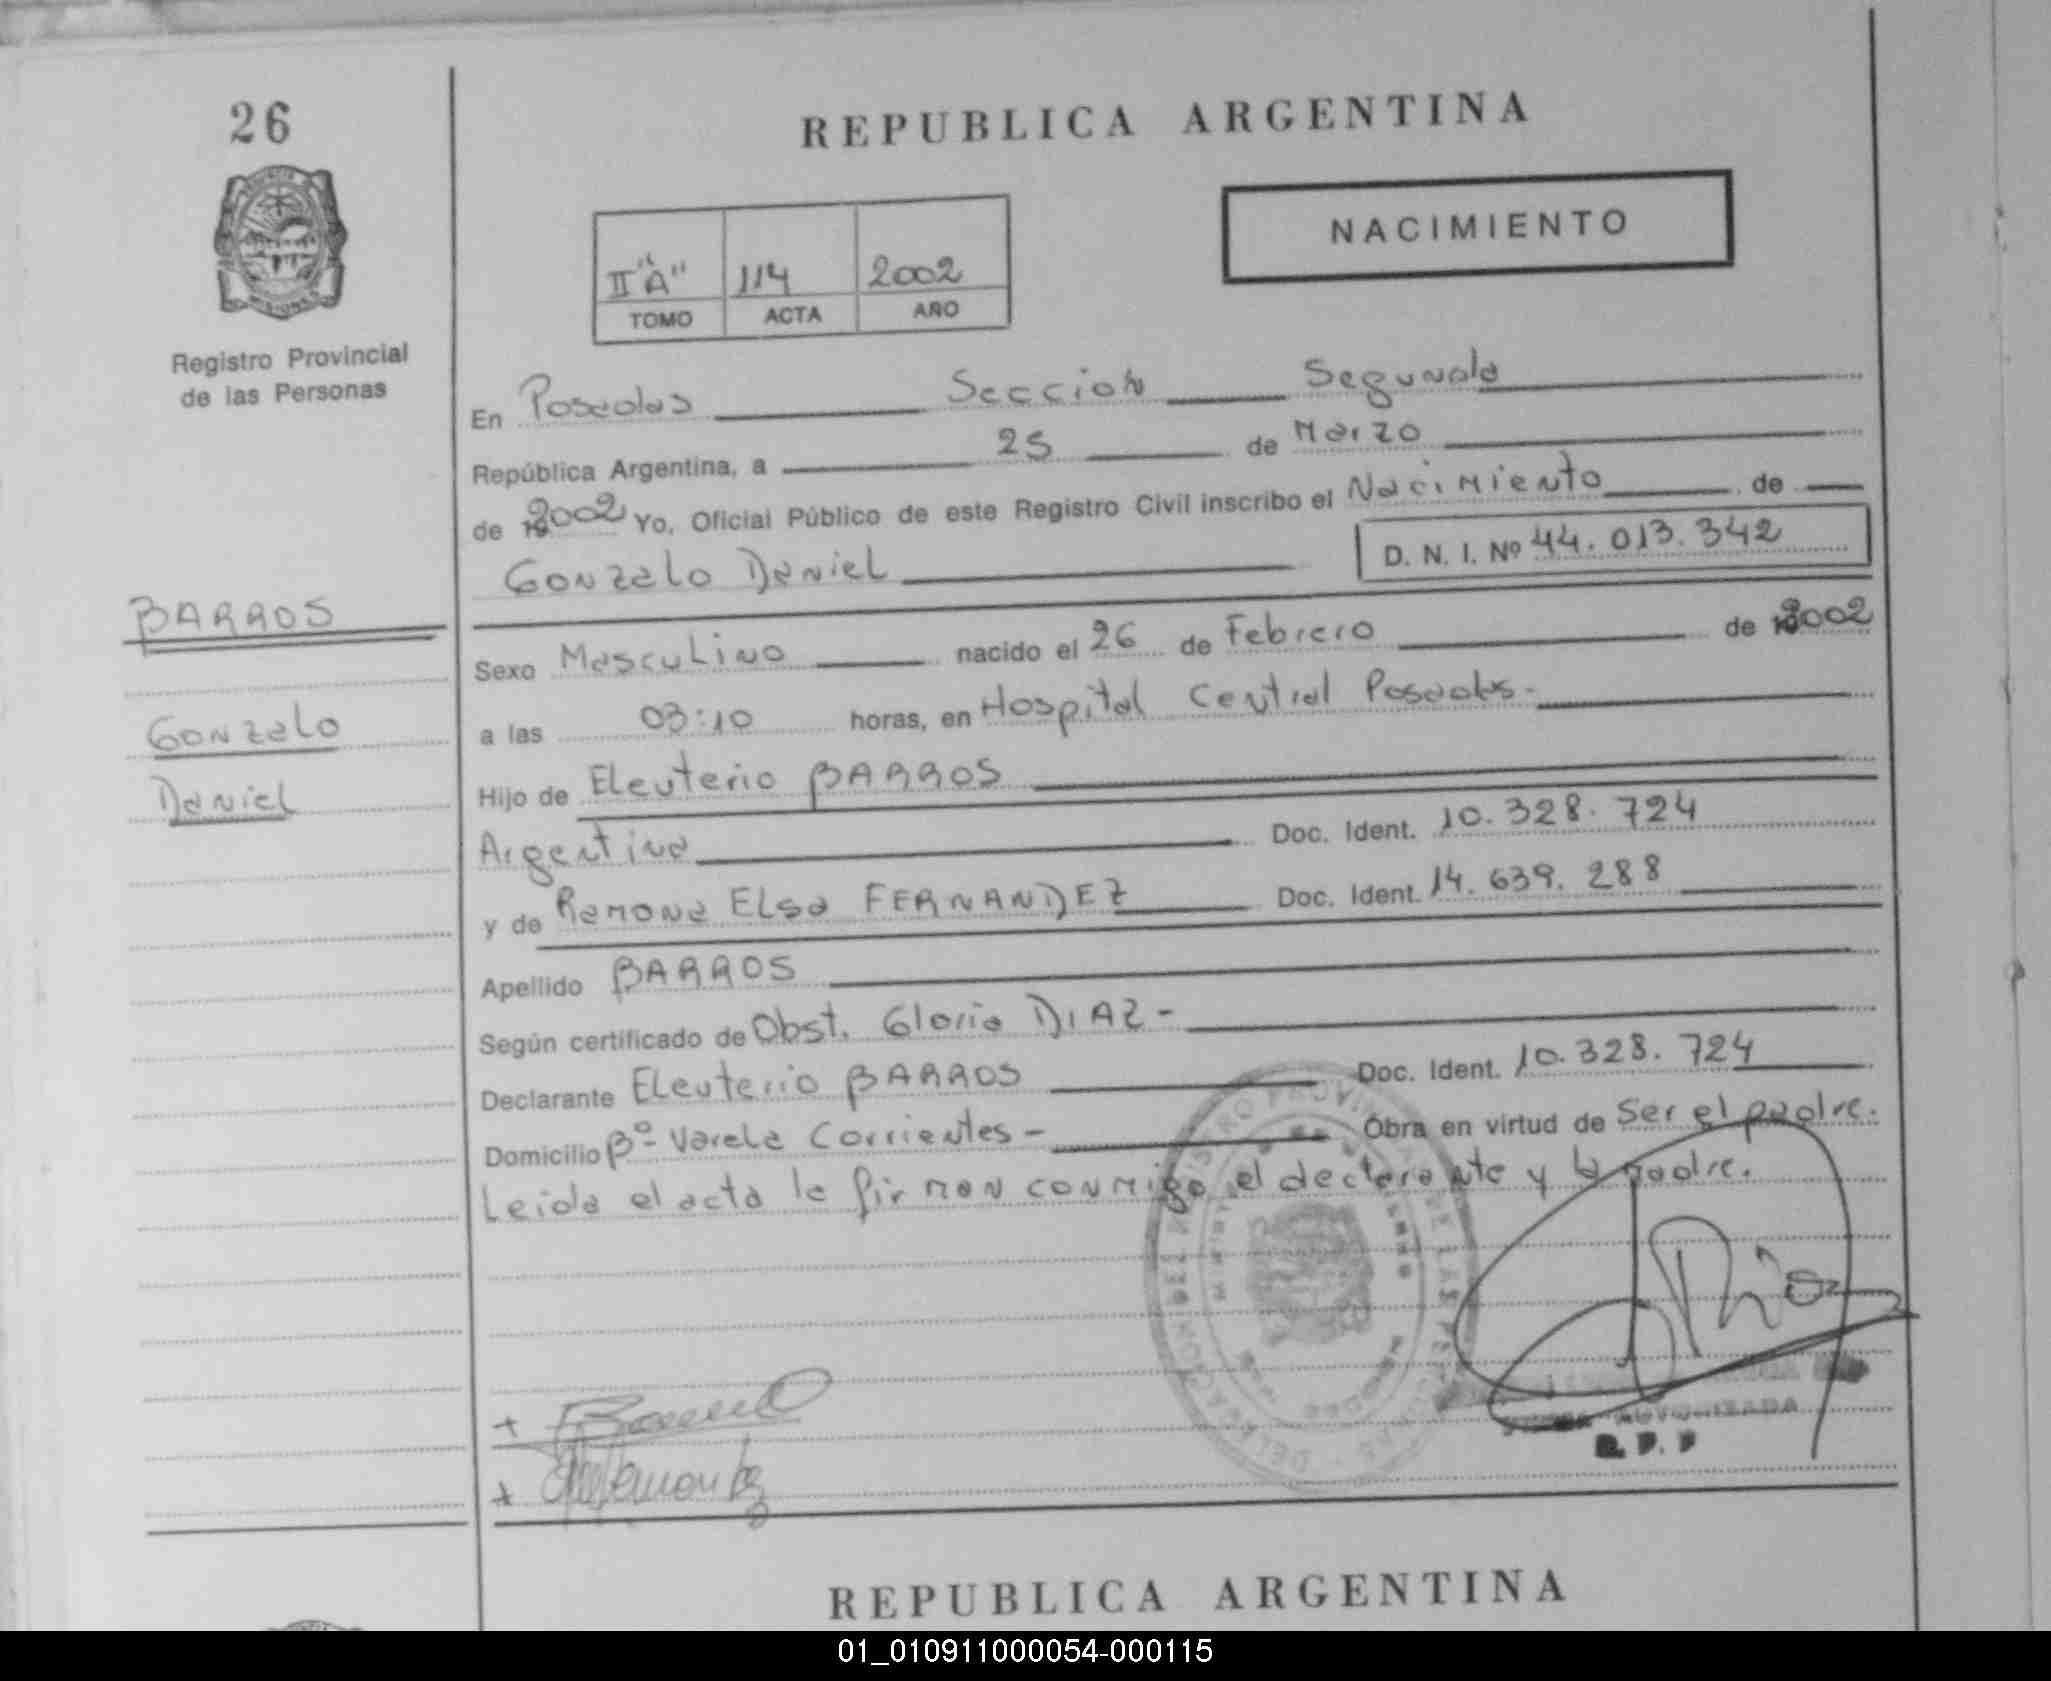 26
REPUBLICA ARGENTINA
NACIMIENTO
II "A" 114 2002
TOMO ACTA AÑO
Registro Provincial
de las Personas
En Posadas Seccion Segunda
República Argentina, a 25 de Marzo
de 2002 Yo, Oficial Público de este Registro Civil inscribo el Nacimiento de
Gonzalo Daniel D. N. I. Nº 44.013.342
BARROS
Gonzalo
Daniel
Sexo Masculino nacido el 26 de Febrero de 2002
a las 03:10 horas, en Hospital Central Posadas.-
Hijo de Eleuterio BARROS
Argentina Doc. Ident. 10.328.724
y de Ramona Elsa FERNANDEZ Doc. Ident. 14.639.288
Apellido BARROS
Según certificado de Obst. Gloria DIAZ-
Declarante Eleuterio BARROS Doc. Ident. 10.328.724
Domicilio Bº Varela Corrientes- Obra en virtud de Ser el padre.
Leida el acta la firman conmigo el declarante y la madre.
REPUBLICA ARGENTINA
01_010911000054-000115